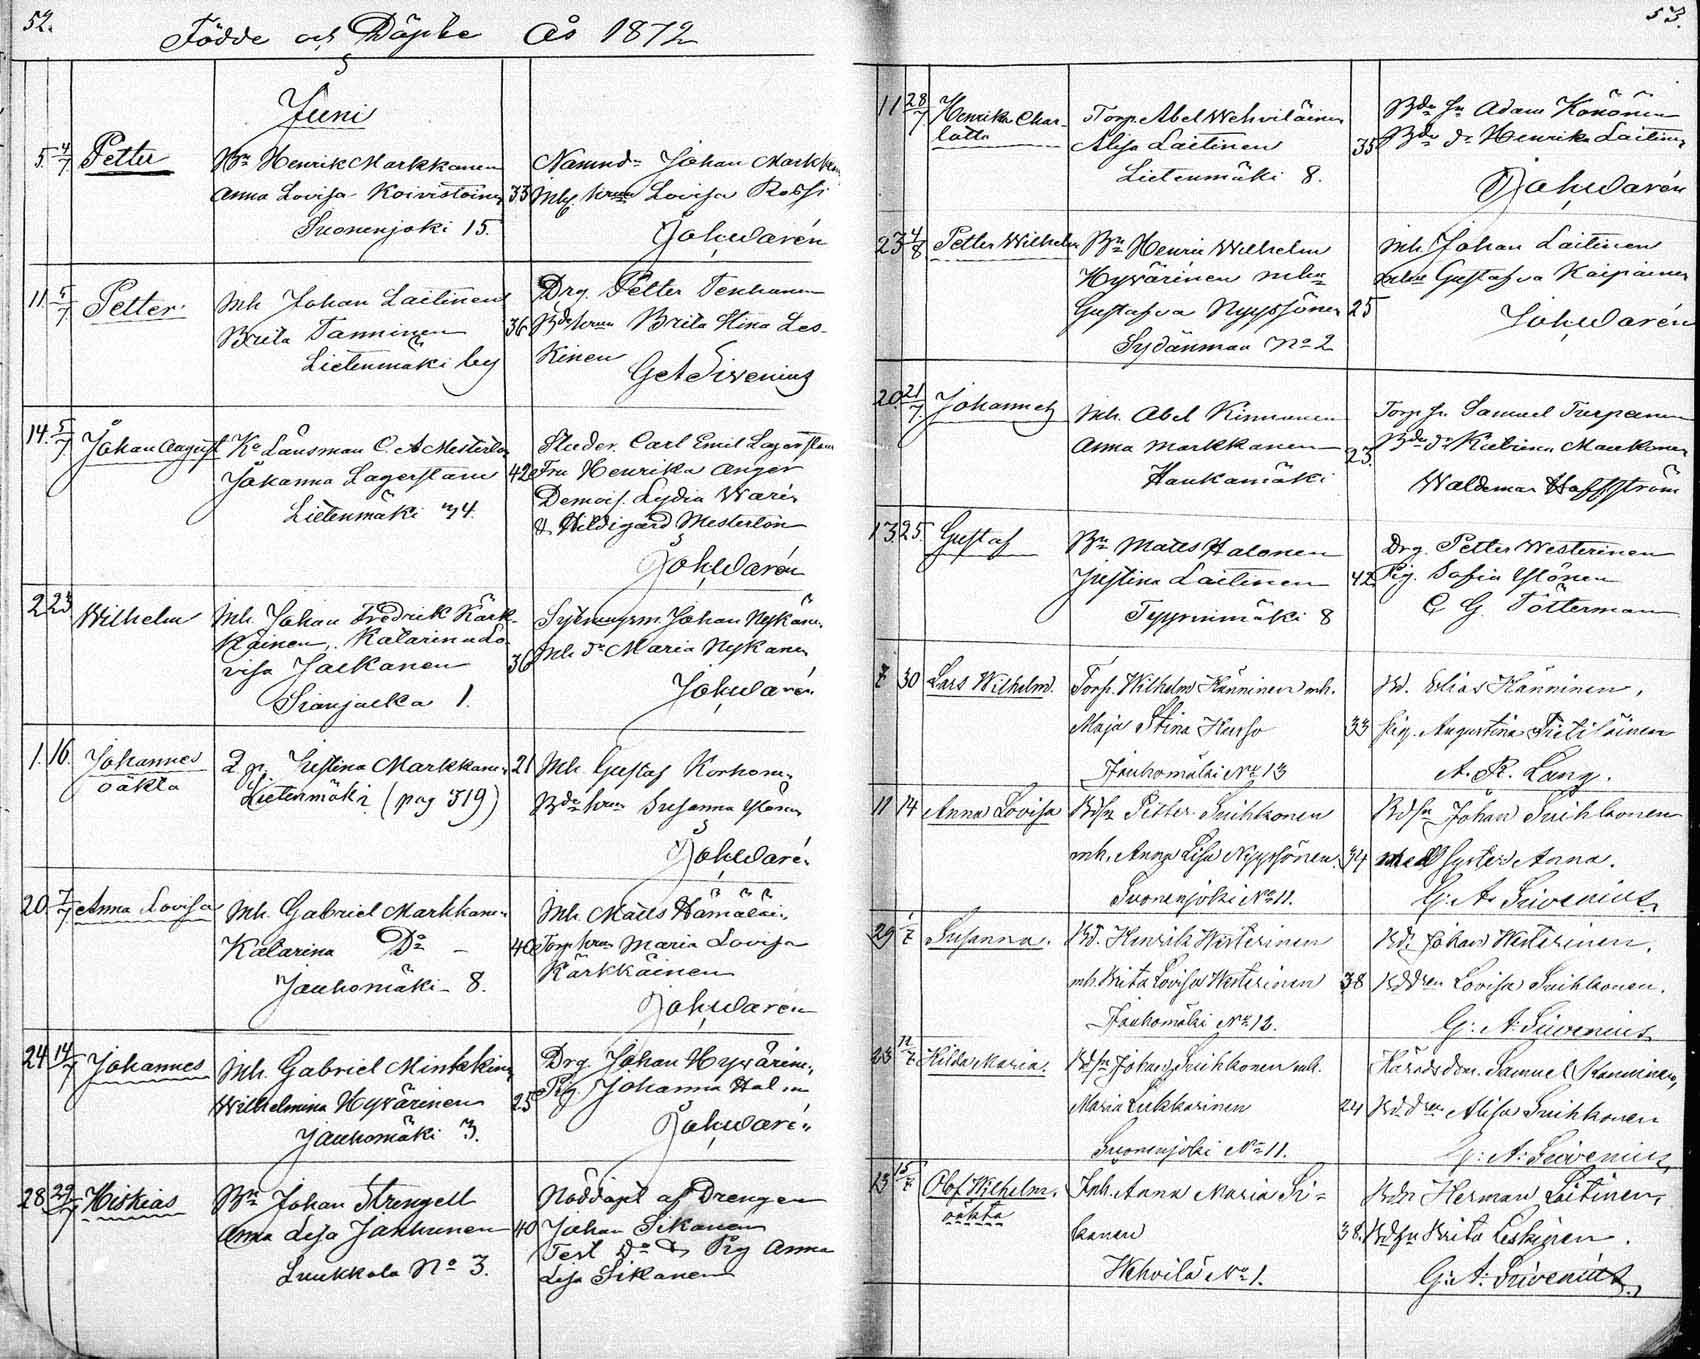 52.
Födde och Döpte År 1872
Juni
5 4/7 Petter Bn Henrik Markkanen
Anna Lovisa Koivistoinen 33
Suonenjoki 15.
Nämnd= Johan Markkanen
Lovisa Rossi
Joh. Warén
11 5/7 Petter Inh Johan Laitinen
Brita Tanninen 36
Lietenmäki by
Drg. Petter Tenhunen
Brita Stina Les-
kinen
G A Sivenius
14. 5/7 Johan August Ko Länsman C. A Mesterton
Johanna Lagerstam 42
Lietenmäki No 4.
Studer. Carl Emil Lagerstam
Fru Henrika Anger
Demois. Lydia Warén
& Hildigärd Mesterton
Joh. Warén
2 23 Wilhelm Inh. Johan Fredrik Kärk-
käinen, Katarina Lo-
visa Jalkanen 36
Sianjalka 1.
Johan Nykänen
Inh. dr Maria Nykänen
Joh. Warén
1. 16. Johannes
oäkta
Pig. Justina Markkanen 21
Lietenmäki (pag 319)
Inh. Gustaf Korhonen
Susanna Ylönen
Joh. Warén
20 7/7 Anna Lovisa Inh. Gabriel Markkanen
Katarina Do - 40
Jauhomäki 8.
Inh. Matts Hämäläinen
Torp. hrun Maria Lovisa
Kärkkäinen
Joh. Warén
24 14/7 Johannes Inh. Gabriel Minkkinen
Wilhelmina Hyvärinen 25
Jauhomäki 3.
Drg Johan Hyvärinen
Pig. Johanna
Joh. Warén
28 29/7 Hiskias Bn Johan Strengell
Anna Lisa Jauhunen 40
Luukkola No 3.
Nöddöpt af Drengen
Johan Sikanen
Test Do & Pig Anna
Lisa Sikanen
53.
11 28/7 Henrika Char-
lotta
Torp. Abel Wehviläinen
Alisa Laitinen 35
Lietenmäki 8.
Bdn sn Adam Könönen
Bdn dr Henrika Laitinen
Joh. Warén
23 4/8 Petter Wilhelm Bn Henric Wilhelm
Hyvärinen mhu
Gustafva Nyyssönen 25
Sydänmaa No 2
Inh. Johan Laitinen
Gustafva Kaipainen
Joh. Warén
20 21/7 Johannes Inh. Abel Kinnunen
Anna Markkanen 23
Haukamäki
Torp. sn. Samuel Turpeinen
Bdn dr Katrina Mankonen
Waldemar Hoffström
13 25. Gustaf Bn Matts Halonen
Justina Laitinen 42
Tyyrinmäki 8
Drg. Petter Westerinen
Pig. Sofia Ylönen
C. G. Tötterman
7 30 Lars Wilhelm. Torp. Wilhelm Hänninen mh.
Maja Stina Husso 33
Jauhomäki No 13
Bd. Elias Hänninen,
pig. Augustina Tietiläinen
A. R. Lang.
11 14 Anna Lovisa Bdsn Petter Suihkonen
mh. Anna Lisa Nyyssönen. 34
Suonenjoki No 11.
Bdsn Johan Suihkonen
med Syster Anna.
G: A: Sivenius
29 1/7 Susanna. Bd. Henrik Westerinen
mh. Brita Lovisa Westerinen 38
Jauhomäki No 12.
Bd: Johan Westerinen,
Bddren Lovisa Suihkonen.
G: A: Sivenius
23 12/7 Hilda Maria. Bdsn Johan Suihkonen mh.
Maria Lukkarinen 24
Suonenjoki No 11.
Häradsdom. Samuel
Bddren Alisa Suihkonen
G: A: Sivenius
13 15/7 Olof Wilhelm.
oäkta
Inh. Anna Maria Si=
kanen 38.
Wehvilä No 1.
Bdn Herman Laitinen,
Brita Leskinen.
G: A: Sivenius.